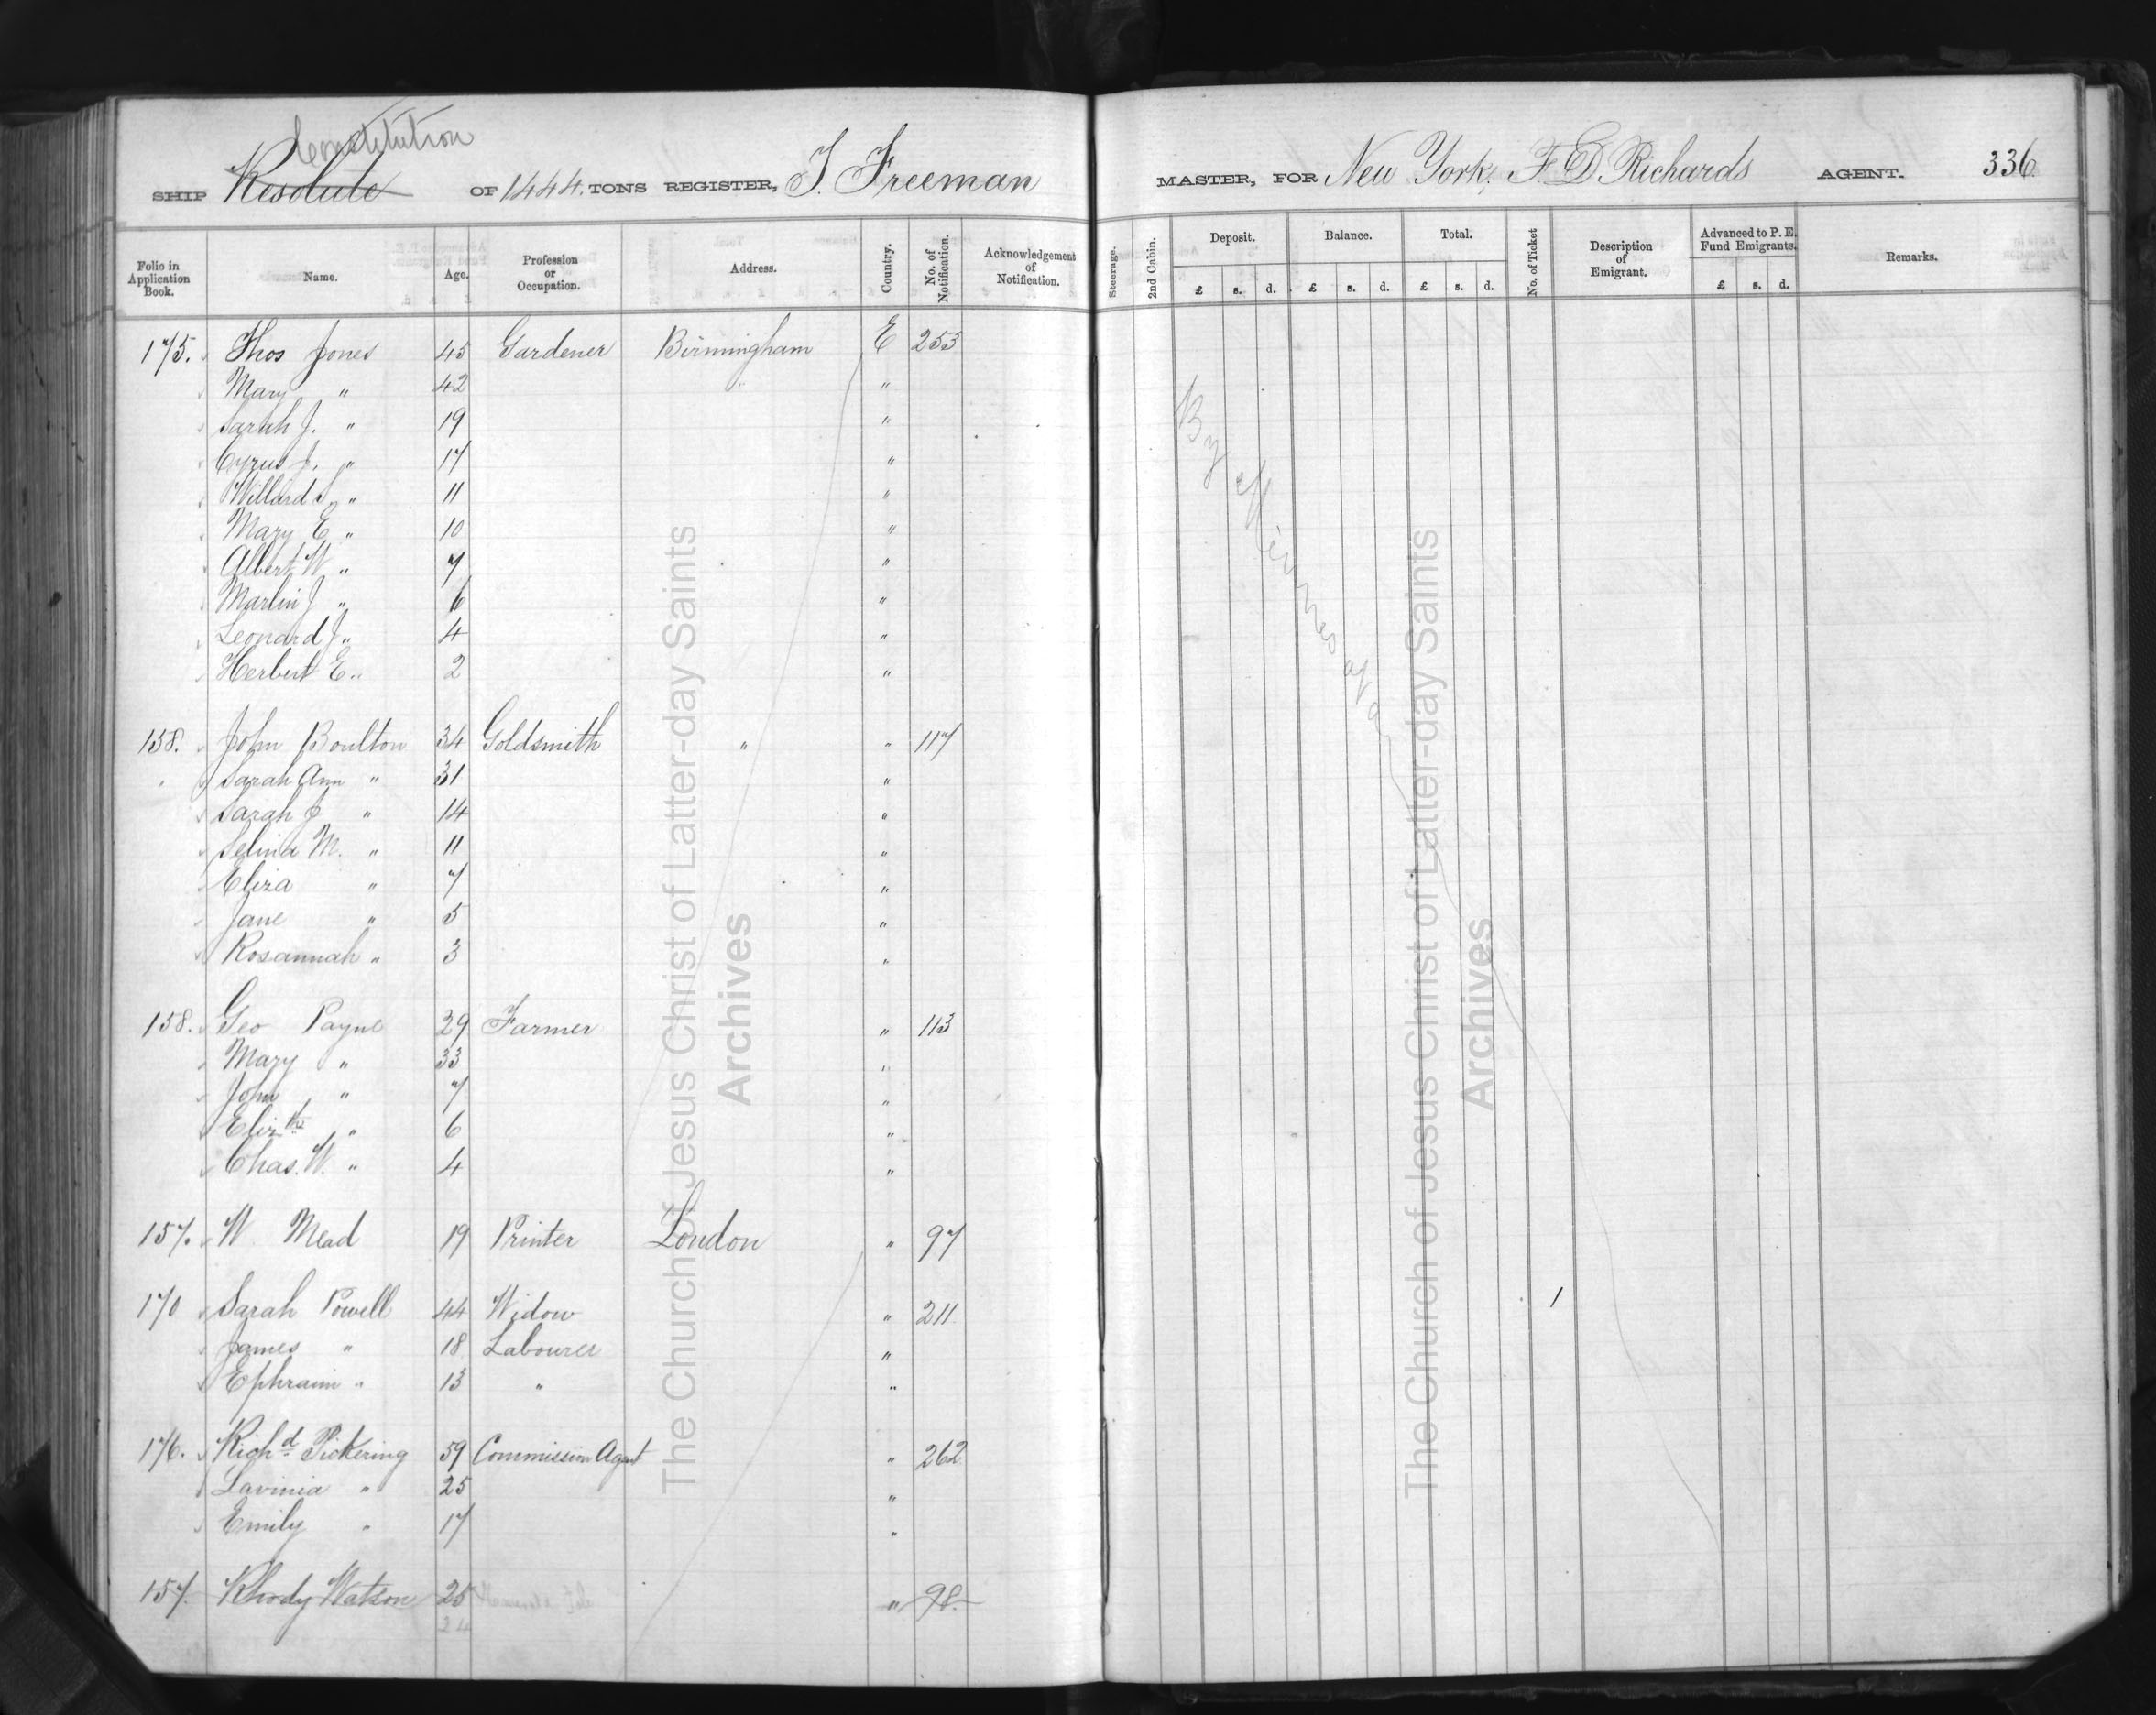 Constitution
SHIP Resolute OF 1444. TONS REGISTER, J. Freeman MASTER, FOR New York, F. D. Richards AGENT. 336
Folio in Application Book. Name. Age. Profession or Occupation. Address. Country. No. of Notification. Acknowledgement of Notification. Steerage. 2nd Cabin. Deposit. Balance. Total. No. of Ticket Description of Emigrant. Advanced to P. E. Fund Emigrants. Remarks.
£ s. d. £ s. d. £ s. d. £ s. d.
175. Thos Jones 45 Gardener Birmingham E 253
Mary " 42 " "
Sarah J. " 19 "
Cyrus J. " 17 "
Willard S. " 11 "
Mary E. " 10 "
Albert W " 7 "
Marlin J " 6 "
Leonard J " 4 "
Herbert E " 2 "
158. John Boulton 34 Goldsmith " " 117
Sarah Ann " 31 "
Sarah J " 14 "
Selina M. " 11 "
Eliza " 7 "
Jane " 5 "
Rosannah " 3 "
158. Geo Payne 29 Farmer " 113
Mary " 33 "
John " 7 "
Elizth " 6 "
Chas. W. " 4 "
157. W. Mead 19 Printer London " 97
170 Sarah Powell 44 Widow " 211.
James " 18 Labourer "
Ephraim " 13 " "
176. Richd Pickering 59 Commission Agent " 262
Lavinia " 25 "
Emily " 17 "
157. Rhody Watson 25 " 98.
24
The Church of Jesus Christ of Latter-day Saints
Archives
By
of
The Church of Jesus Christ of Latter-day Saints
Archives